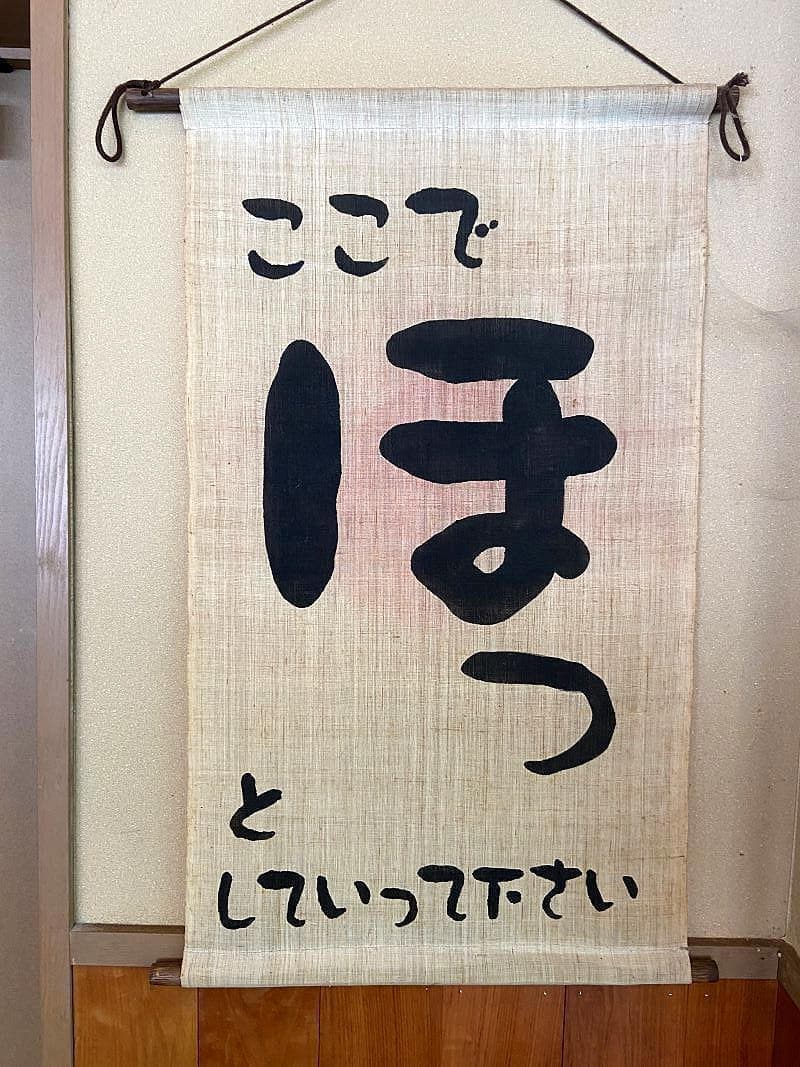 ここで
ほ
っ
と
していって下さい